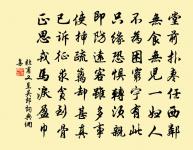 堂前扑棗任西鄰
無食無兒一婦人
不為困窮寧有此
只緣恐懼轉須親
即防遠客雖多事
使插疏籬却甚真
已訴征求貧到骨
正思戎馬淚盈巾
杜甫又呈吳郎詩詞典網